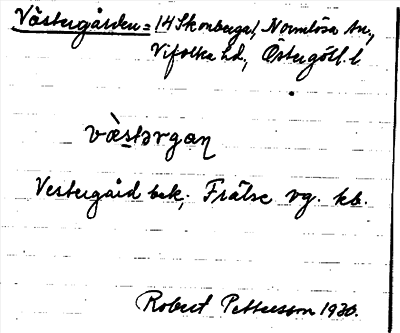 Västergården = 14 Skonberga, Normlösa sn,
Vifolka hd, Östergötl. l
vàstərgaɳ
Vestergård bek. Frälse vg. kb.
Robert Pettersson 1930.